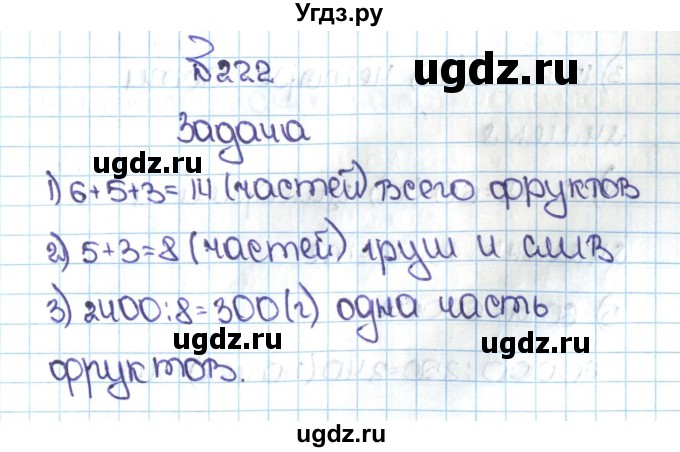 Угдз.ру
№222
ugdz.ru
Задача
ugdz.ru
1) 6+5+3=14 (частей) всего фруктов
2) 5+3=8 (частей) груш и слив
3) 2400:8=300(г) одна часть
ugdz.ru
ugdz.ru
фруктов.
ugdz.ru